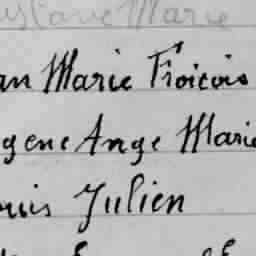 ustave Marie
an Marie Froicois
gene Ange Marie
ouis Julien